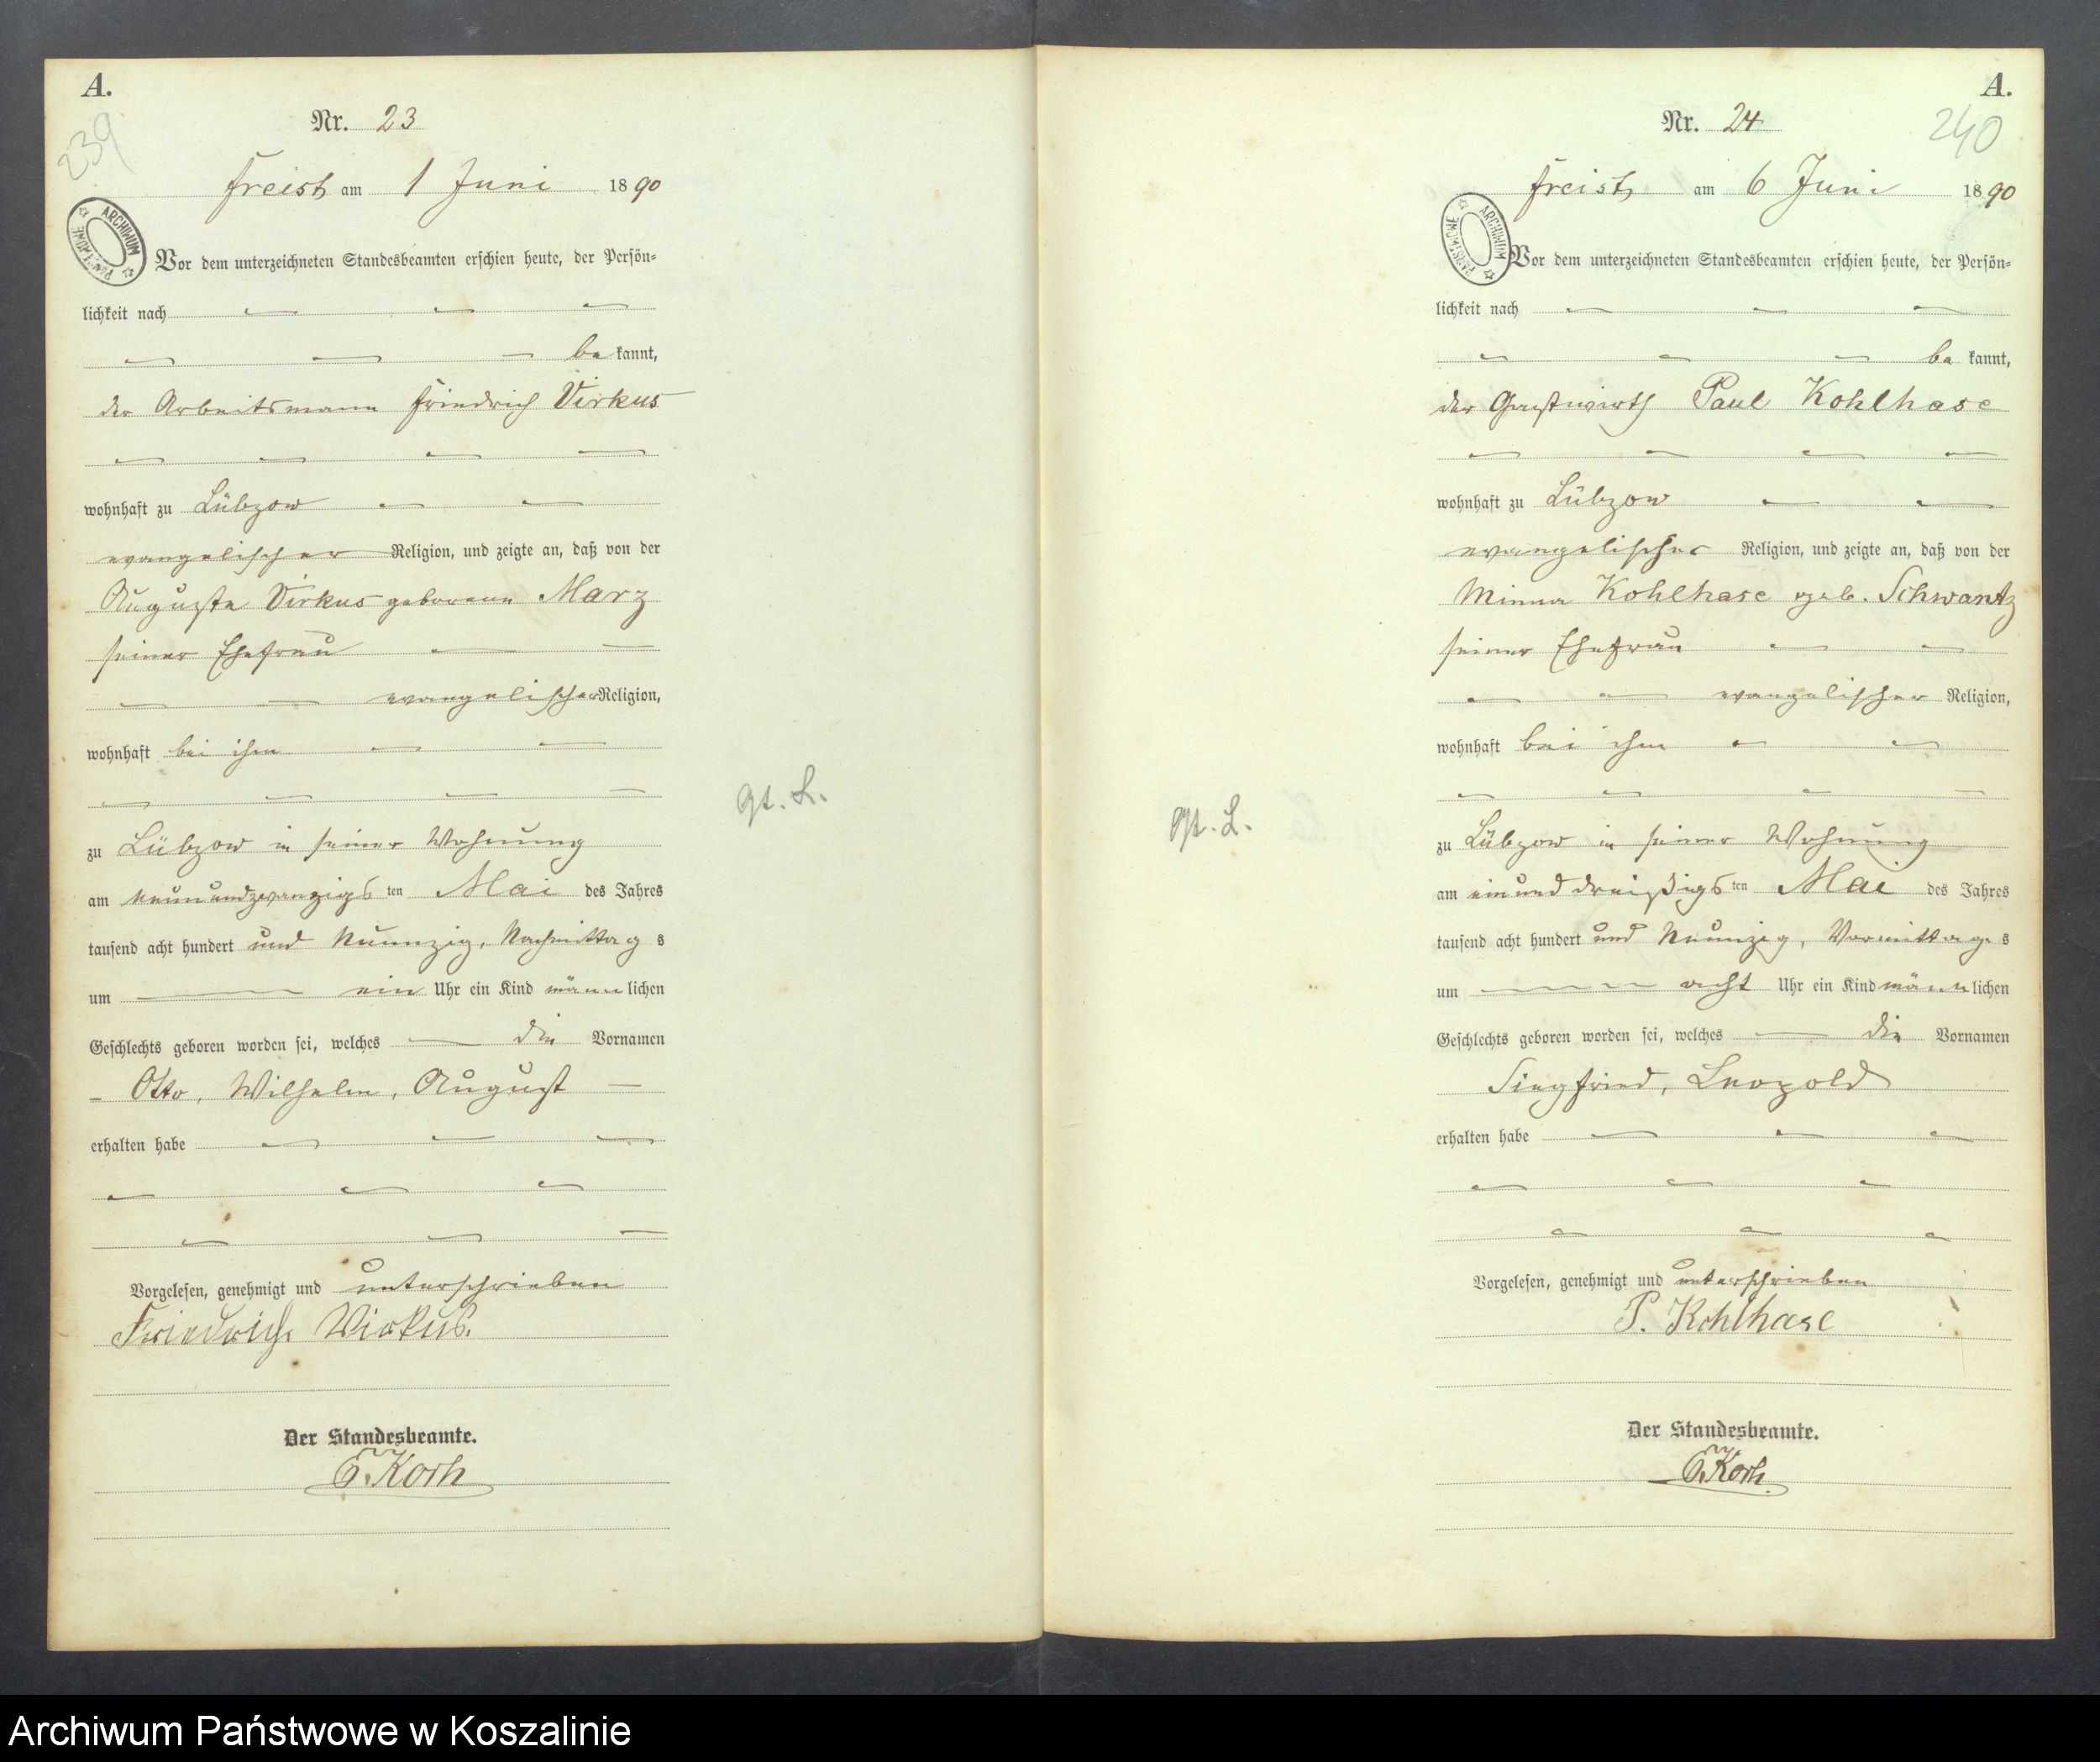 A.
239
Nr. 23
Freist am 1 Juni 1890
ARCHIWUM PAŃSTWOWE
Vor dem unterzeichneten Standesbeamten erschien heute, der Persön-
lichkeit nach
be kannt,
der Arbeitsmann Friedrich Virkus
wohnhaft zu Lübzow
evangelischer Religion, und zeigte an, daß von der
Auguste Virkus geborenen Marz
seiner Ehefrau
evangelischer Religion,
wohnhaft bei ihm
zu Lübzow in seiner Wohnung
am neunundzwanzigs ten Mai des Jahres
tausend acht hundert und Neunzig, Nachmittag s
um ein Uhr ein Kind männlichen
Geschlechts geboren worden sei, welches die Vornamen
Otto, Wilhelm, August
erhalten habe
Vorgelesen, genehmigt und unterschrieben
Friedrich Virkus.
Der Standesbeamte.
E. Koch
gt. L.
A.
240
Nr. 24
Freist am 6 Juni 1890
ARCHIWUM PAŃSTWOWE
Vor dem unterzeichneten Standesbeamten erschien heute, der Persön-
lichkeit nach
be kannt,
der Gastwirth Paul Kohlhase
wohnhaft zu Lübzow
evangelischer Religion, und zeigte an, daß von der
Minna Kohlhase geb. Schwantz
seiner Ehefrau
evangelischer Religion,
wohnhaft bei ihm
zu Lübzow in seiner Wohnung
am einunddreißigs ten Mai des Jahres
tausend acht hundert und Neunzig, Vormittage s
um acht Uhr ein Kind männlichen
Geschlechts geboren worden sei, welches die Vornamen
Siegfried, Leopold
erhalten habe
Vorgelesen, genehmigt und unterschrieben
P. Kohlhase
Der Standesbeamte.
E. Koch.
gt. L.
Archiwum Państwowe w Koszalinie